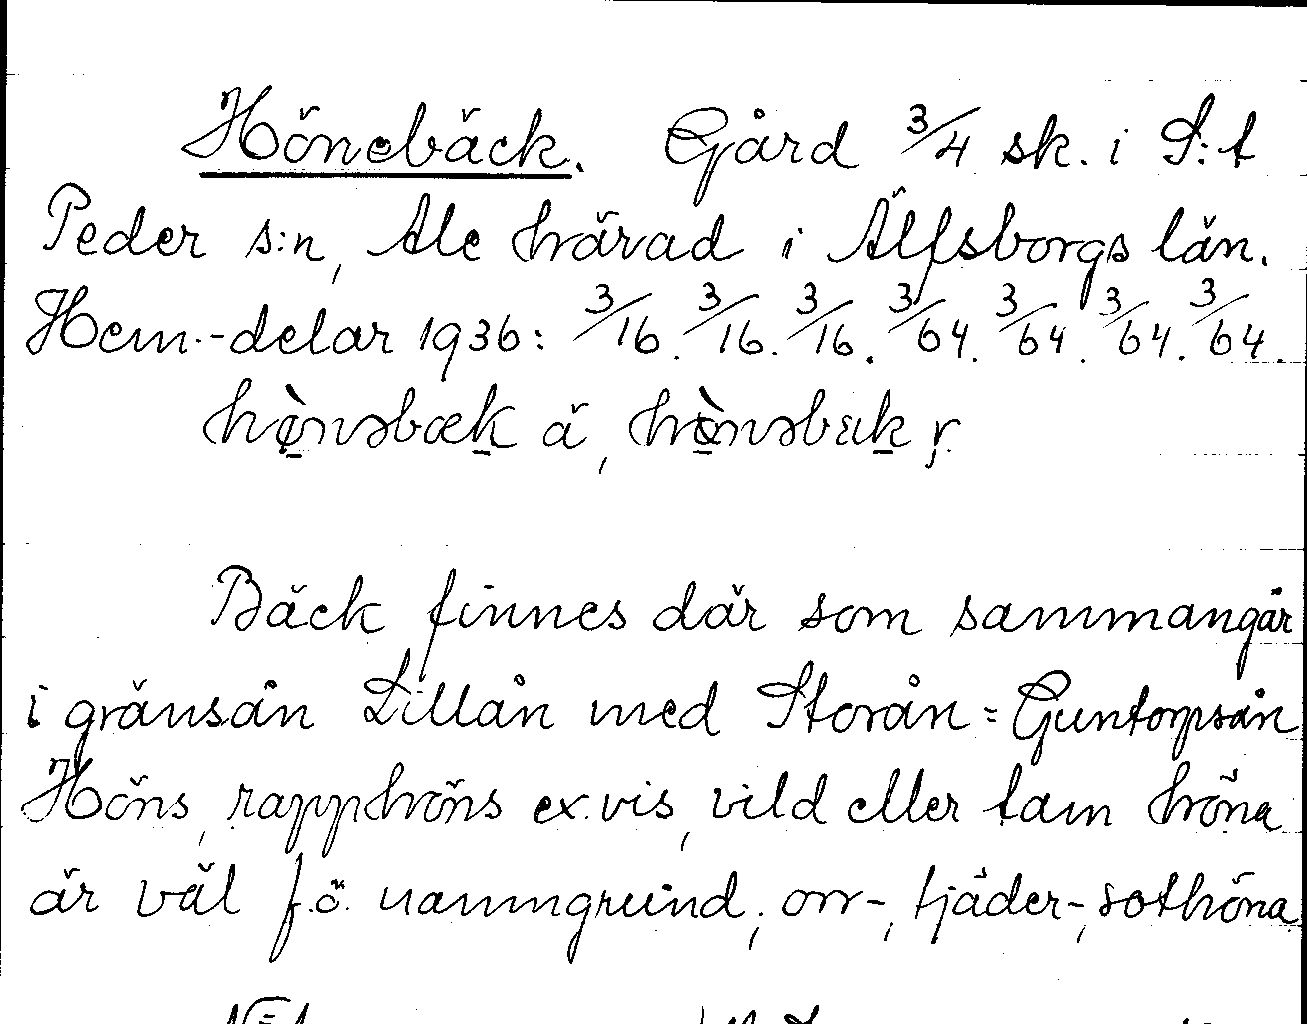 Hönebäck. Gård 3/4 sk. i S:t
Peder s:n, Ale härad i Älfsborgs län.
Hem.-delar 1936: 3/16. 3/16. 3/16. 3/64. 3/64. 3/64. 3/64.
ä,
Bäck finnes där som sammangår
i gränsån Lillån med Storån = Guntorpsån
Höns, rapphöns ex.vis, vild eller tam höna
är väl f.ö. namngrund, orr-, tjäder-, sothöna